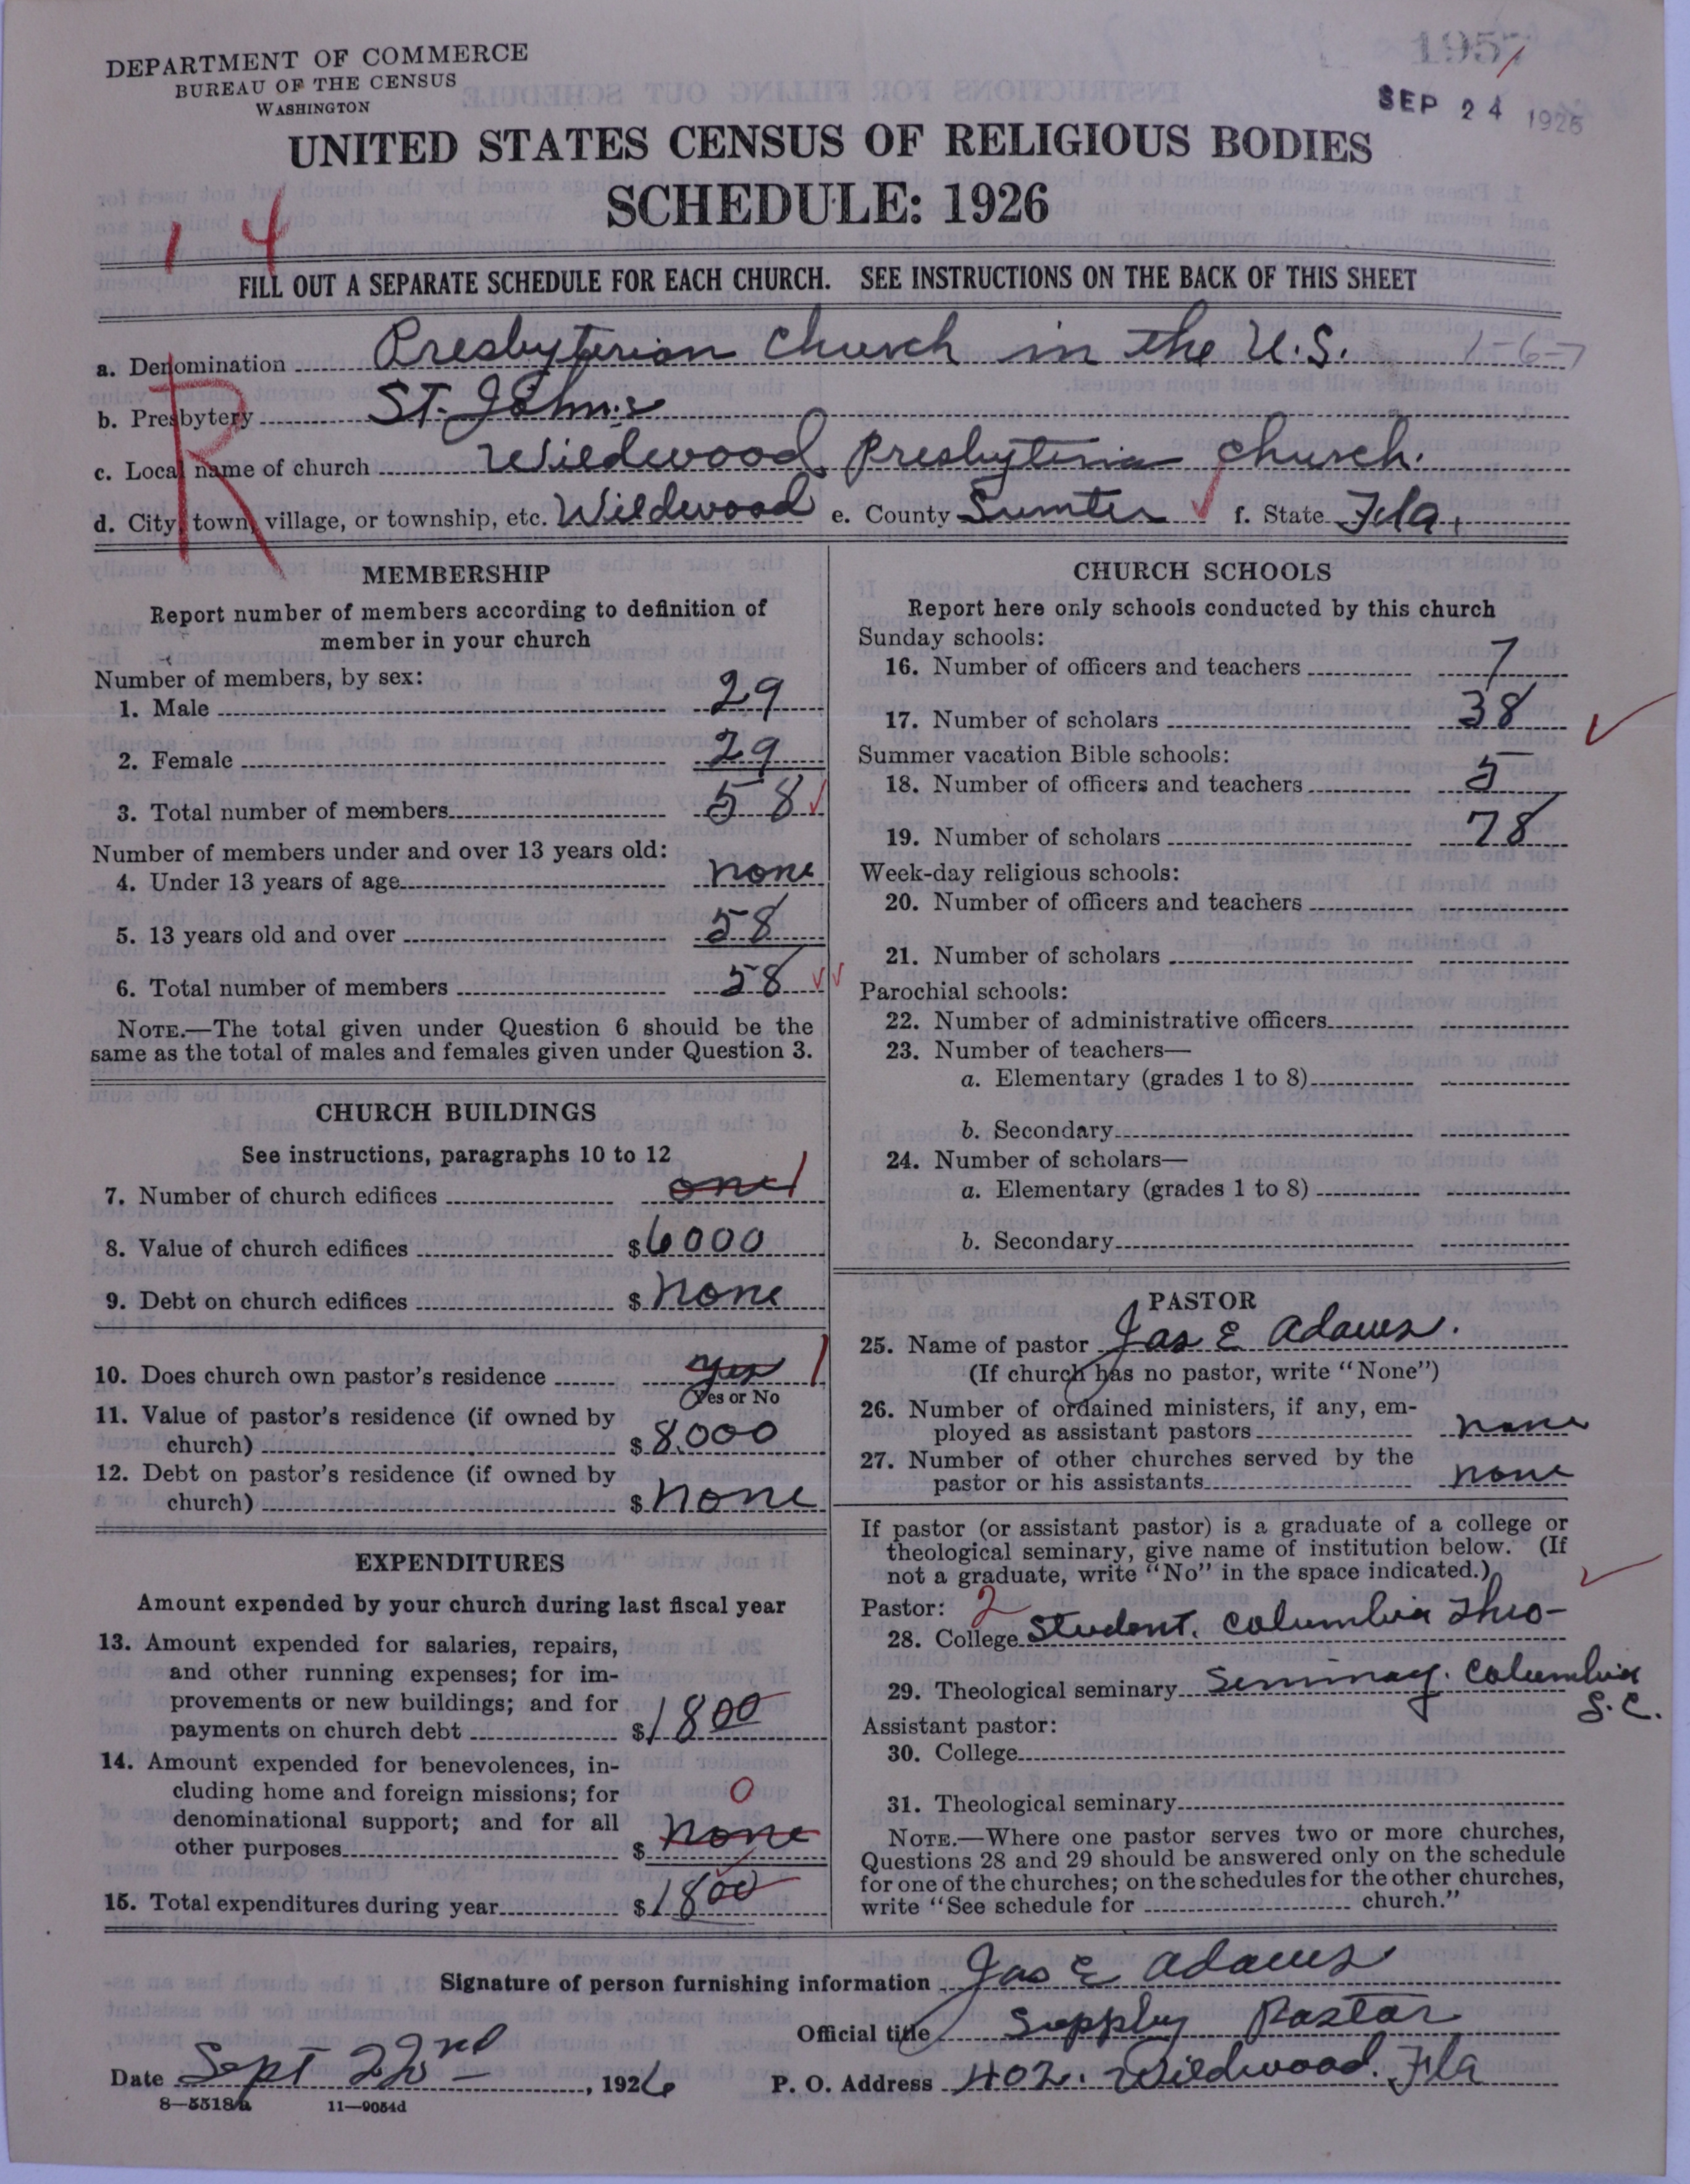 1957
SEP 24 1926
DEPARTMENT OF COMMERCE
BUREAU OF THE CENSUS
WASHINGTON
UNITED STATES CENSUS OF RELIGIOUS BODIES
SCHEDULE: 1926
1 4
FILL OUT A SEPARATE SCHEDULE FOR EACH CHURCH. SEE INSTRUCTIONS ON THE BACK OF THIS SHEET
R
a. Denomination Presbyterian Church in the U.S. 1-6-7
b. Presbytery St. Johns
c. Local name of church Wildwood Presbyterian Church.
d. City, town, village, or township, etc. Wildwood e. County Sumter f. State Fla.
MEMBERSHIP
Report number of members according to definition of
member in your church
Number of members, by sex:
1. Male 29
2. Female 29
3. Total number of members 58
Number of members under and over 13 years old:
4. Under 13 years of age none
5. 13 years old and over 58
6. Total number of members 58
NOTE.—The total given under Question 6 should be the
same as the total of males and females given under Question 3.
CHURCH BUILDINGS
See instructions, paragraphs 10 to 12
7. Number of church edifices one 1
8. Value of church edifices $6000
9. Debt on church edifices $none
10. Does church own pastor's residence yes 1
Yes or No
11. Value of pastor's residence (if owned by
church) $8,000
12. Debt on pastor's residence (if owned by
church) $none
EXPENDITURES
Amount expended by your church during last fiscal year
13. Amount expended for salaries, repairs,
and other running expenses; for im-
provements or new buildings; and for
payments on church debt $1800
14. Amount expended for benevolences, in-
cluding home and foreign missions; for 0
denominational support; and for all
other purposes $none
15. Total expenditures during year $1800
CHURCH SCHOOLS
Report here only schools conducted by this church
Sunday schools:
16. Number of officers and teachers 7
17. Number of scholars 38
Summer vacation Bible schools:
18. Number of officers and teachers 5
19. Number of scholars 78
Week-day religious schools:
20. Number of officers and teachers
21. Number of scholars
Parochial schools:
22. Number of administrative officers
23. Number of teachers—
a. Elementary (grades 1 to 8)
b. Secondary
24. Number of scholars—
a. Elementary (grades 1 to 8)
b. Secondary
PASTOR
25. Name of pastor Jas E Adams.
(If church has no pastor, write "None")
26. Number of ordained ministers, if any, em-
ployed as assistant pastors none
27. Number of other churches served by the
pastor or his assistants none
If pastor (or assistant pastor) is a graduate of a college or
theological seminary, give name of institution below. (If
not a graduate, write "No" in the space indicated.)
Pastor: 2
28. College Student. Columbia Theo-
29. Theological seminary Seminary. Columbia
S.C.
Assistant pastor:
30. College
31. Theological seminary
NOTE.—Where one pastor serves two or more churches,
Questions 28 and 29 should be answered only on the schedule
for one of the churches; on the schedules for the other churches,
write "See schedule for church."
Signature of person furnishing information Jas E Adams
Official title Supply Pastor
Date Sept 22nd, 1926 P. O. Address 402. Wildwood. Fla
8—5518a 11—9054d